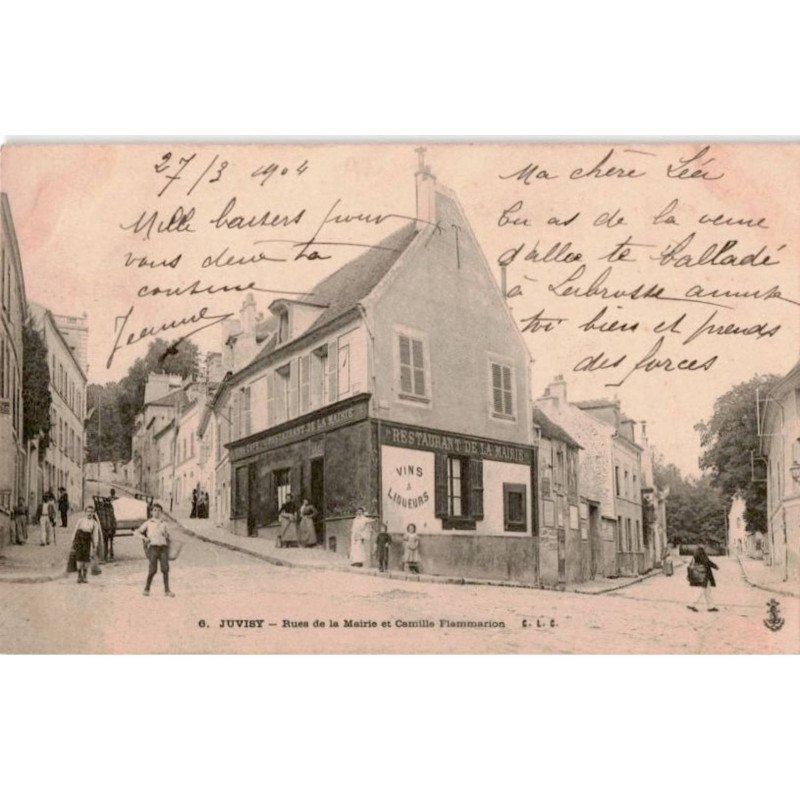 27/3 1904
Mille baisers pour
vous deux ta
cousine
Jeanne
Ma chère Léa
Tu as de la veine
d'aller te balladé
à Labrosse amuse
toi bien et prends
des forces
CAFÉ RESTAURANT DE LA MAIRIE
RESTAURANT DE LA MAIRIE
VINS
&
LIQUEURS
6. JUVISY — Rues de la Mairie et Camille Flammarion C. L. C.